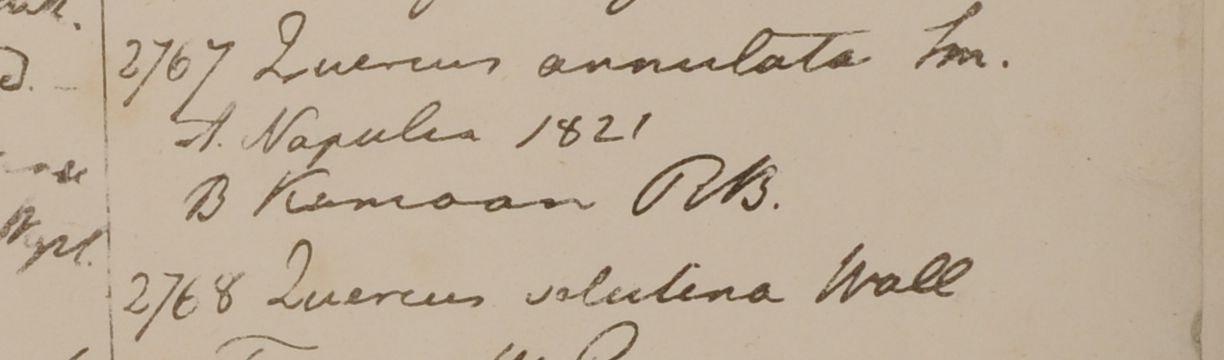 2767 Quercus annulata Sm.
A. Napulia 1821
B Kamoan RB.
2768 Quercus velutina Wall